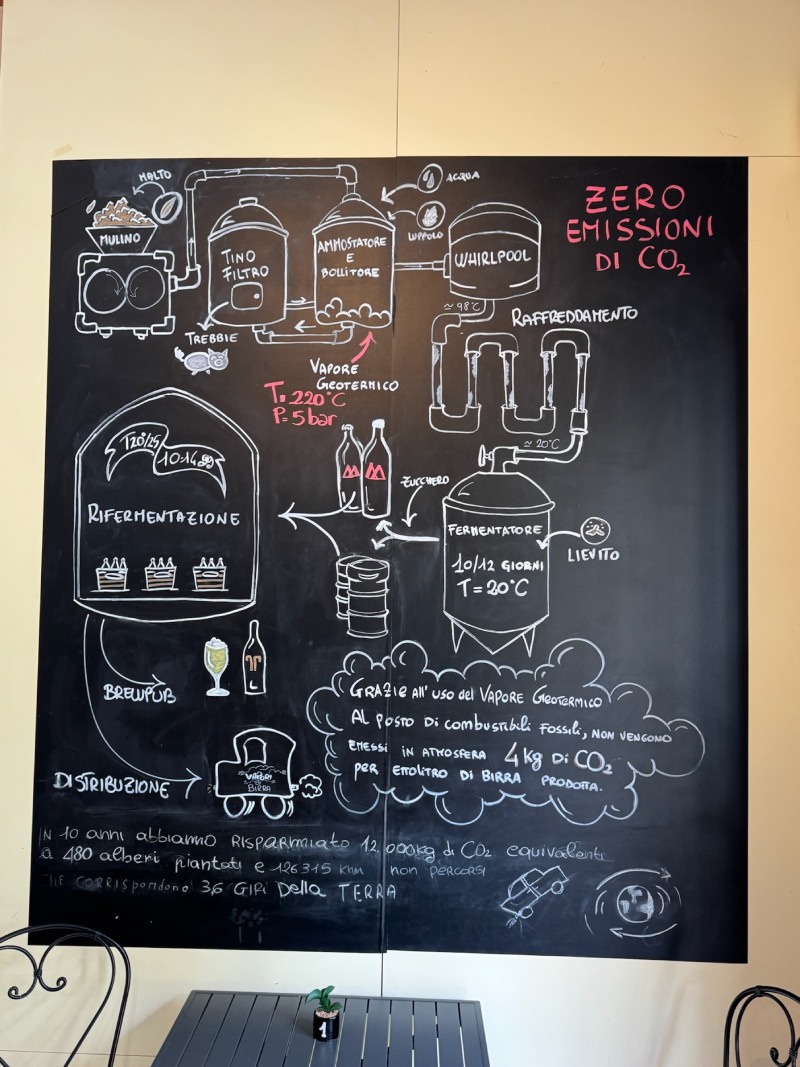 MALTO
MULINO
TINO
FILTRO
TREBBIE
AMMOSTATORE
E
BOLLITORE
ACQUA
LUPPOLO
WHIRLPOOL
ZERO
EMISSIONI
DI CO₂
≃ 98°C
RAFFREDDAMENTO
VAPORE
GEOTERMICO
T= 220°C
P= 5 bar
≃ 20°C
T20°/25
10-14 gg
RIFERMENTAZIONE
ZUCCHERO
FERMENTATORE
10/12 GIORNI
T = 20°C
LIEVITO
BREWPUB
DISTRIBUZIONE
VAPORI
DI
BIRRA
GRAZIE All' uso del VAPORE GEOTERMICO
AL POSTO DI COMBUSTIBILI FOSSILI, NON VENGONO
EMESSI IN ATMOSFERA 4 kg DI CO₂
PER ETTOLITRO DI BIRRA PRODOTTA.
IN 10 anni abbiamo RISPARMIATO 12,000kg di CO₂ equivalenti
a 480 alberi piantati e 126315 km non PERCORSI
CHE CORRISPONDONO 3,6 GIRI Della TERRA
1